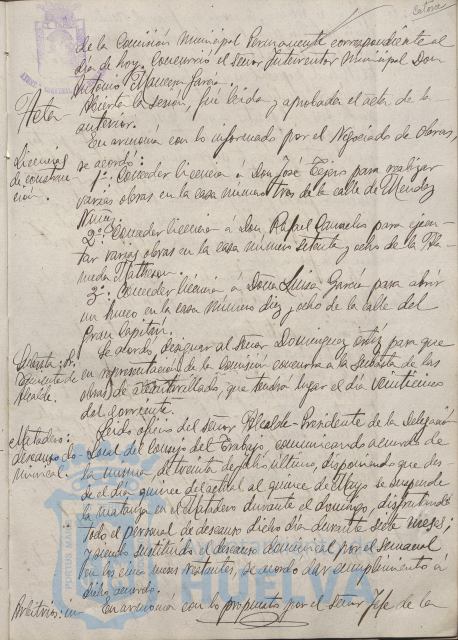 Catorce
de la Comisión Municipal Permanente correspondiente al
día de hoy. Concurrió el Señor Interventor Municipal Don
Antonio Mancera García.
Acta
Abierta la sesión, fué leída y aprobada el acta de la
anterior.
En armonía con lo informado por el Negociado de Obras,
Licencias de construcción.
se acordó:
1º. Conceder licencia á Don José Tejero para realizar
varias obras en la casa número tres de la calle de Mendez
Nuñez.
2º. Conceder licencia á Don Rafael Camacho para ejecu-
tar varias obras en la casa número setenta y ocho de la Ala-
meda Matheson.
3º. Conceder licencia á Doña Luisa García para abrir
un hueco en la casa número diez y ocho de la calle del
Gran Capitán.
Se acordó designar al señor Dominguez Ortiz para que
en representación de la Comisión concurra á la subasta de las
obras de alcantarillado, que tendrá lugar el día veinticinco
del corriente.
Alcalde.
Leido oficio del Señor Alcalde-Presidente de la Delegación
Matadero:
descanso do-
minical.
Local del Consejo del Trabajo, comunicando acuerdo de
la misma de treinta de julio último, disponiendo que des-
de el día quince del actual al quince de Mayo se suspende
la matanza en el Matadero durante el domingo, disfrutando
todo el personal de descanso dicho día durante siete meses;
y siendo sustituido el descanso dominical por el semanal
en los cinco meses restantes, se acordó dar cumplimiento á
dicho acuerdo.
Arbitrios: un
En armonía con lo propuesto por el señor Jefe de la
PORTUS MARIS
HUELVA